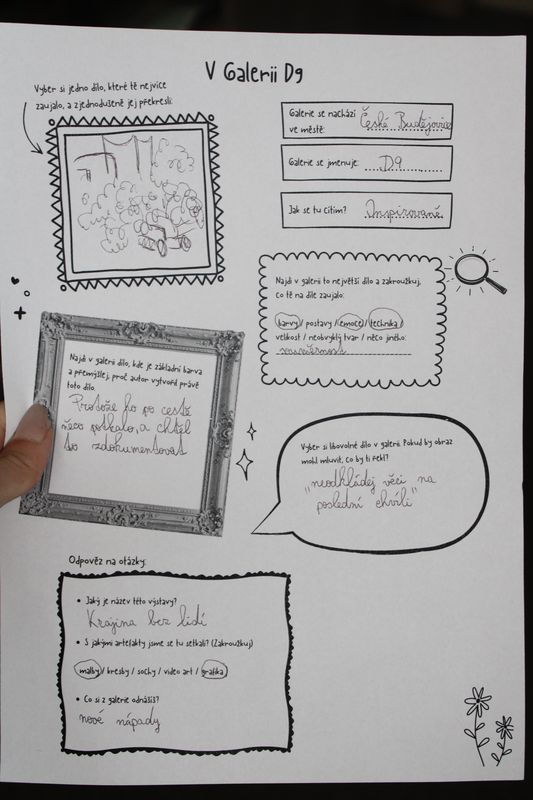 V Galerii D9
Vyber si jedno dílo, které tě nejvíce
zaujalo, a zjednodušeně jej překresli:
Galerie se nachází
ve městě: České Budějovice
Galerie se jmenuje: D9
Jak se tu cítím? Inspirovaně
Najdi v galerii to největší dílo a zakroužkuj,
co tě na díle zaujalo:
barvy / postavy / emoce / technika /
velikost / neobvyklý tvar / něco jiného:
Najdi v galerii dílo, kde je základní barva
a přemýšlej, proč autor vytvořil právě
toto dílo.
Protože ho po cestě
něco potkalo, a chtěl
to zdokumentovat
Vyber si libovolné dílo v galerii. Pokud by obraz
mohl mluvit, co by ti řekl?
„neodkládej věci na
poslední chvíli"
Odpověz na otázky:
• Jaký je název této výstavy?
Krajina bez lidí
• S jakými artefakty jsme se tu setkali? (Zakroužkuj)
malby / kresby / sochy / video art / grafika
• Co si z galerie odnášíš?
nové nápady